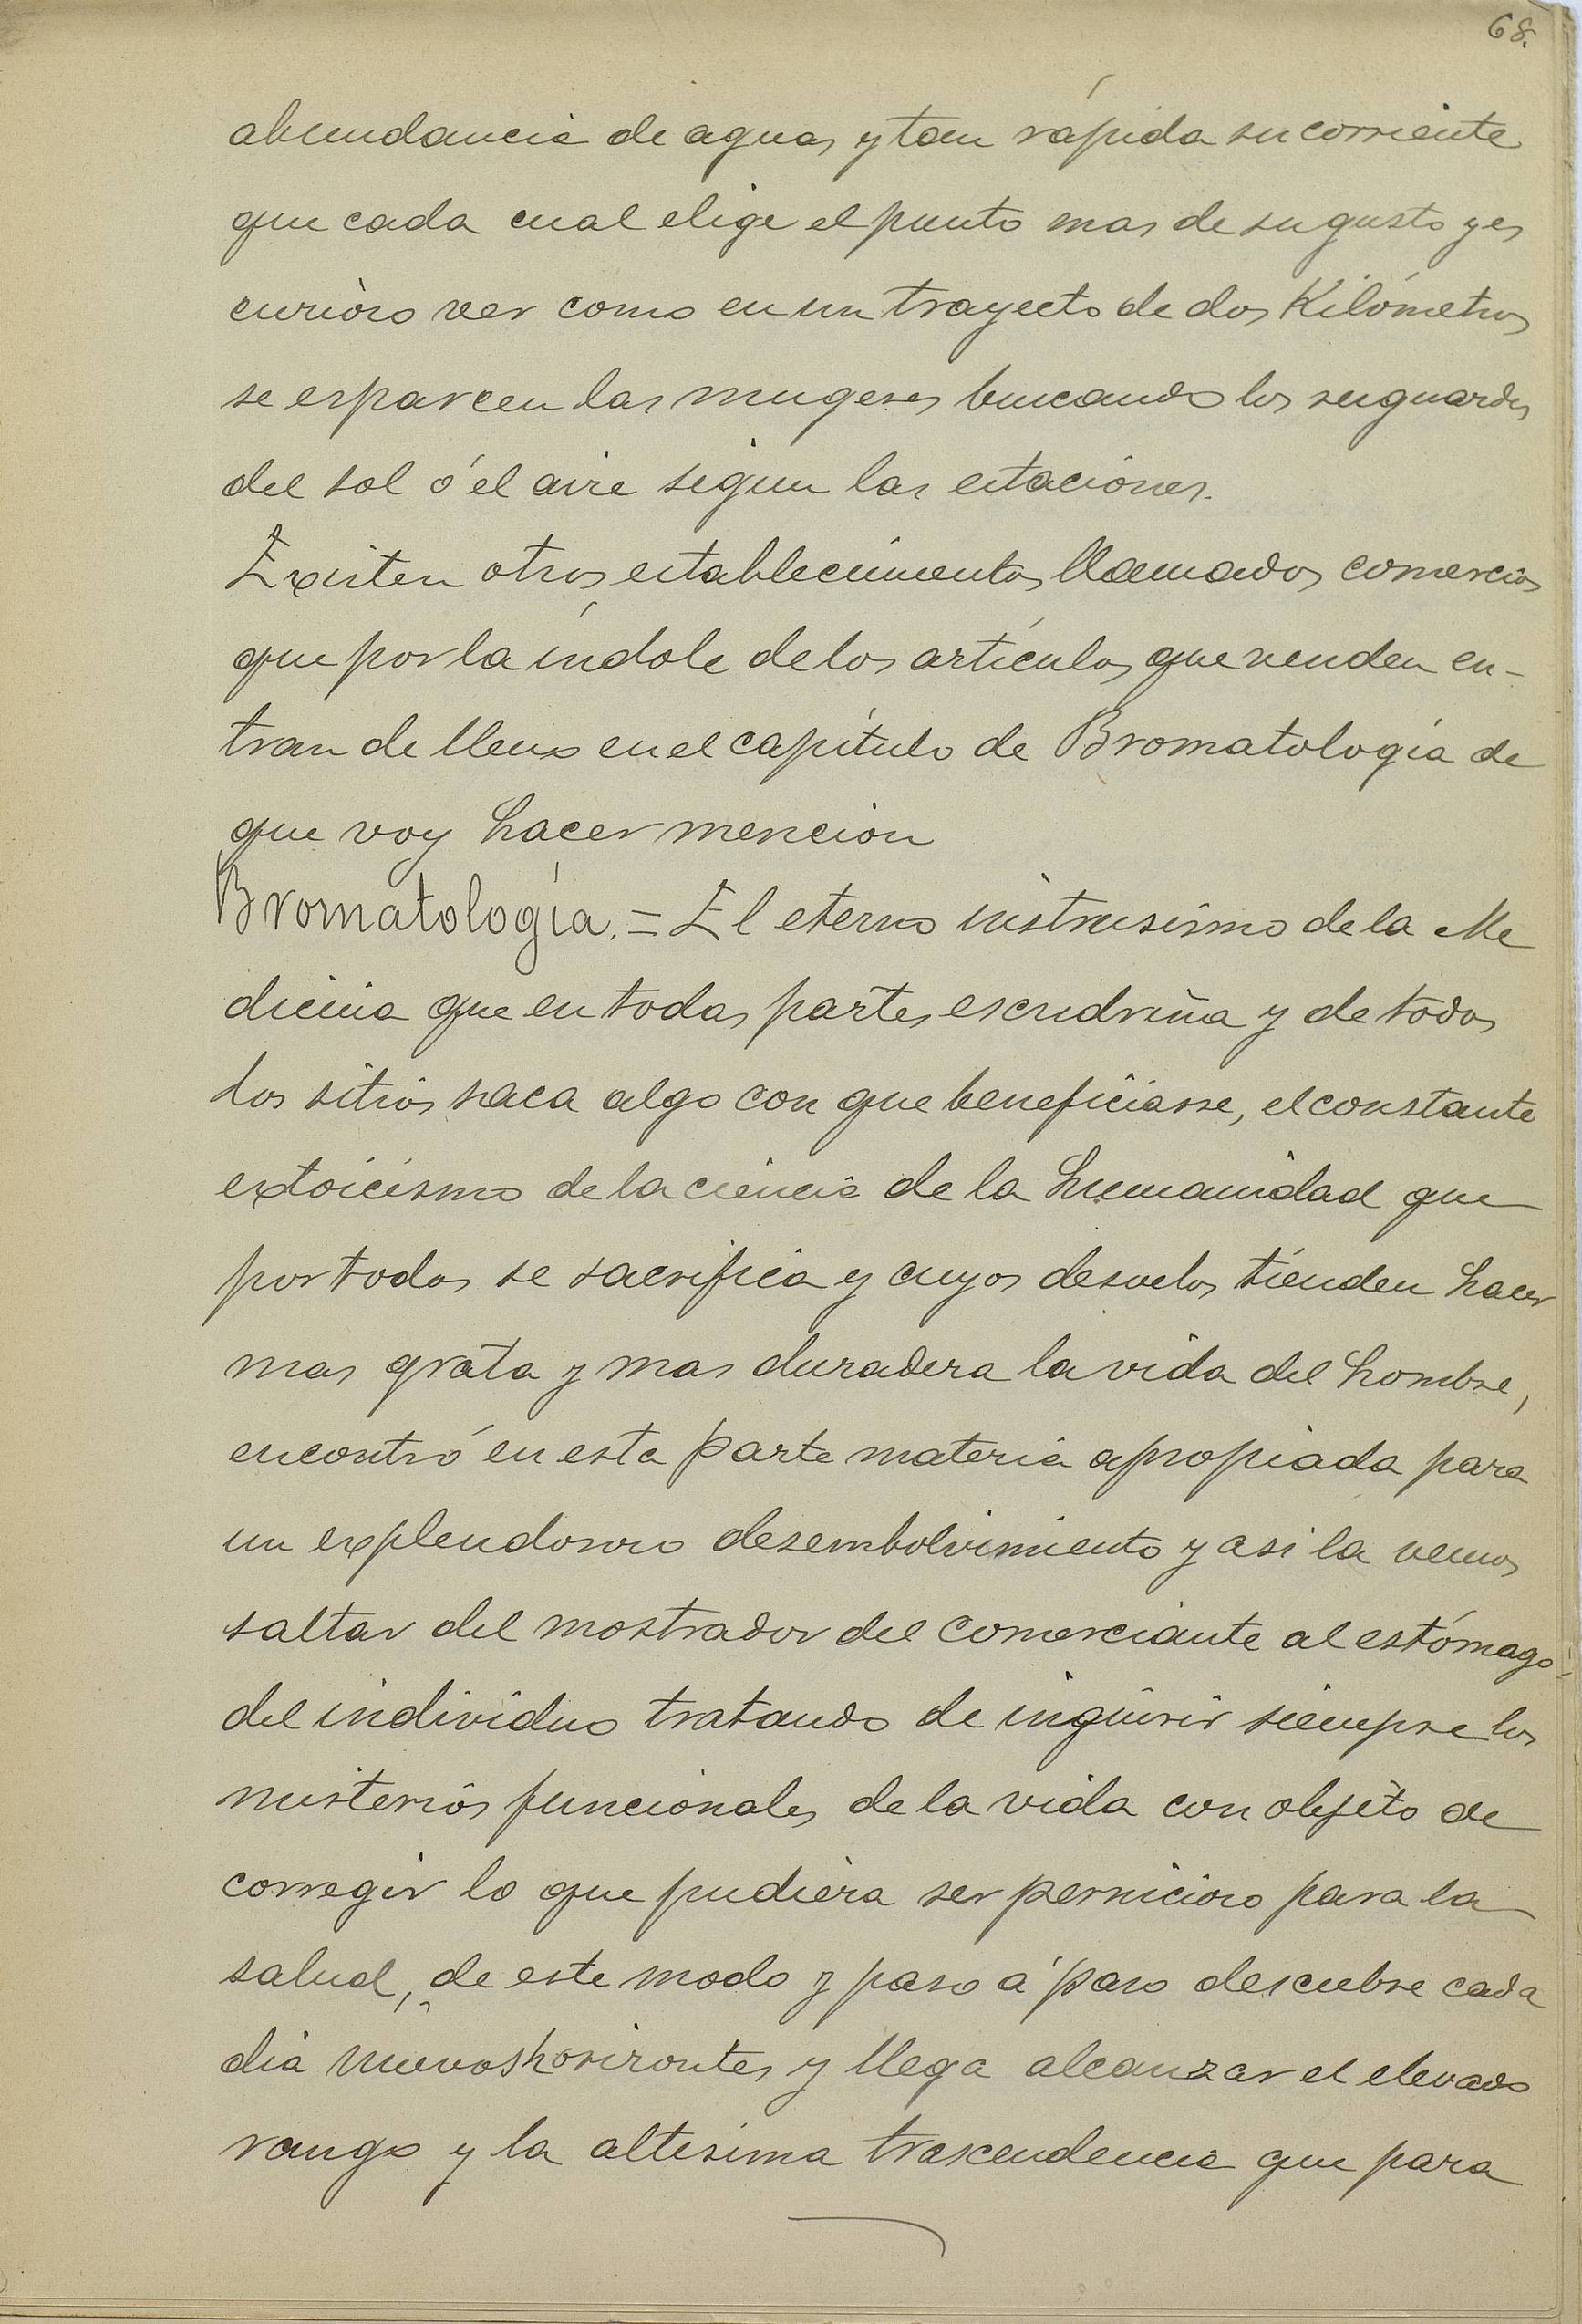 68.
abundancia de aguas y tan rápida su corriente
que cada cual elige el punto mas de su gusto y es
curioso ver como en un trayecto de dos Kilómetros
se esparcen las mugeres buscando los resguardos
del sol ó el aire segun las estaciones.
Existen otros establecimientos llamados comercios
que por la índole de los artículos que venden en-
tran de lleno en el capítulo de Bromatología de
que voy hacer mencion
Bromatología. = El eterno de la Me
dicina que en todas partes escudriña y de todos
los sitios saca algo con que beneficiarse, el constante
extoicismo de la ciencia de la humanidad que
por todos se sacrifica y cuyos desvelos tienden hacer
mas grata y mas duradera la vida del hombre,
encontró en esta parte materia apropiada para
un explendoroso desembolvimiento y asi la vemos
saltar del mostrador del comerciante al estómago
del individuo tratando de inquirir siempre los
misterios funcionales de la vida con objeto de
corregir lo que pudiera ser pernicioso para la
salud, de este modo y paso á paso descubre cada
dia nuevos horizontes y llega alcanzar el elevado
rango y la altisima trascendencia que para